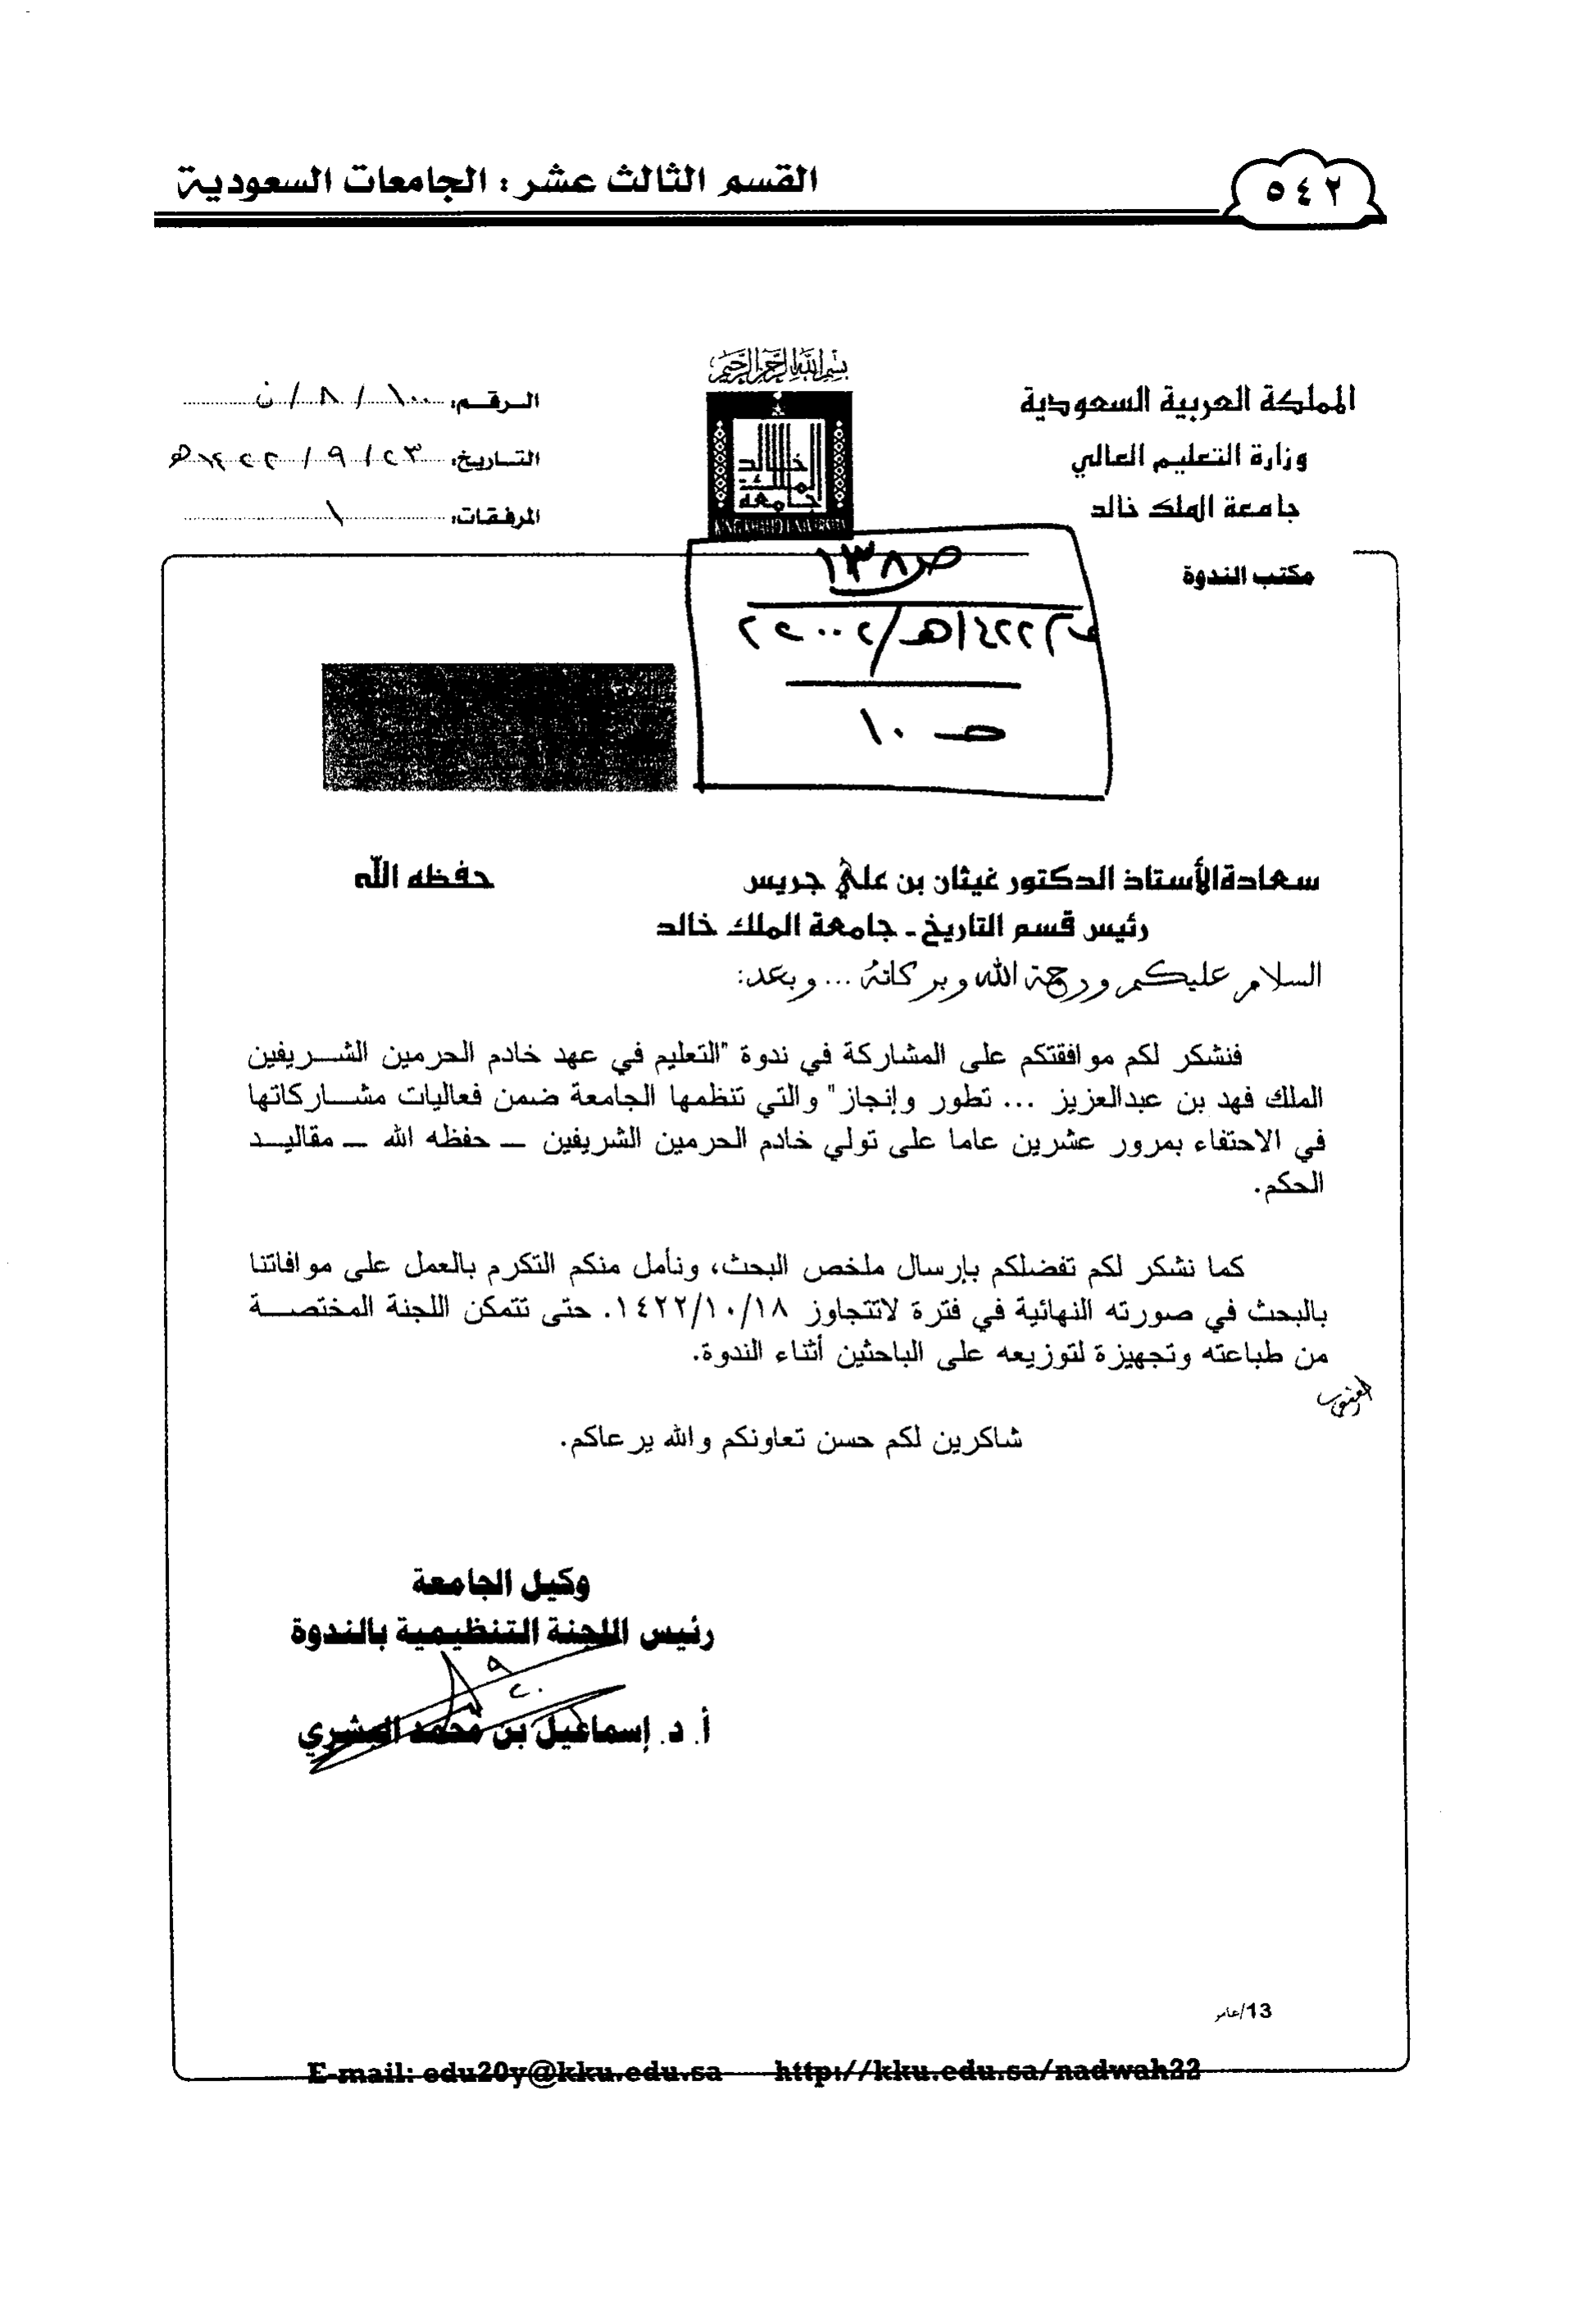 القسم الثالث عشر : الجامعات السعودية
٥٤٢
بسم الله الرحمن الرحيم
المملكة العربية السعودية
وزارة التعليم العالي
جامعة الملك خالد
الرقم: ١٠٠ / ٨ / ن
التاريخ: ٢٣ / ٩ / ١٤٢٢ هـ
المرفقات: ١
جامعة
الملك
خالد
KING KHALID UNIVERSITY
مكتب الندوة
ص ١٣٨
١٤٢٢هـ/٢٠٠٢
ص ١٠
سعادة الأستاذ الدكتور غيثان بن علي جريس حفظه الله
رئيس قسم التاريخ - جامعة الملك خالد
السلام عليكم ورحمة الله وبركاته ... وبعد:
فنشكر لكم موافقتكم على المشاركة في ندوة "التعليم في عهد خادم الحرمين الشريفين
الملك فهد بن عبدالعزيز ... تطور وإنجاز" والتي تنظمها الجامعة ضمن فعاليات مشاركاتها
في الاحتفاء بمرور عشرين عاما على تولي خادم الحرمين الشريفين – حفظه الله – مقاليد
الحكم.
كما نشكر لكم تفضلكم بإرسال ملخص البحث، ونأمل منكم التكرم بالعمل على موافاتنا
بالبحث في صورته النهائية في فترة لاتتجاوز ١٤٢٢/١٠/١٨. حتى تتمكن اللجنة المختصة
من طباعته وتجهيزة لتوزيعه على الباحثين أثناء الندوة.
شاكرين لكم حسن تعاونكم والله يرعاكم.
وكيل الجامعة
رئيس اللجنة التنظيمية بالندوة
أ. د. إسماعيل بن محمد البشري
13/عامر
E-mail: edu20y@kku.edu.sa http://kku.edu.sa/nadwah22